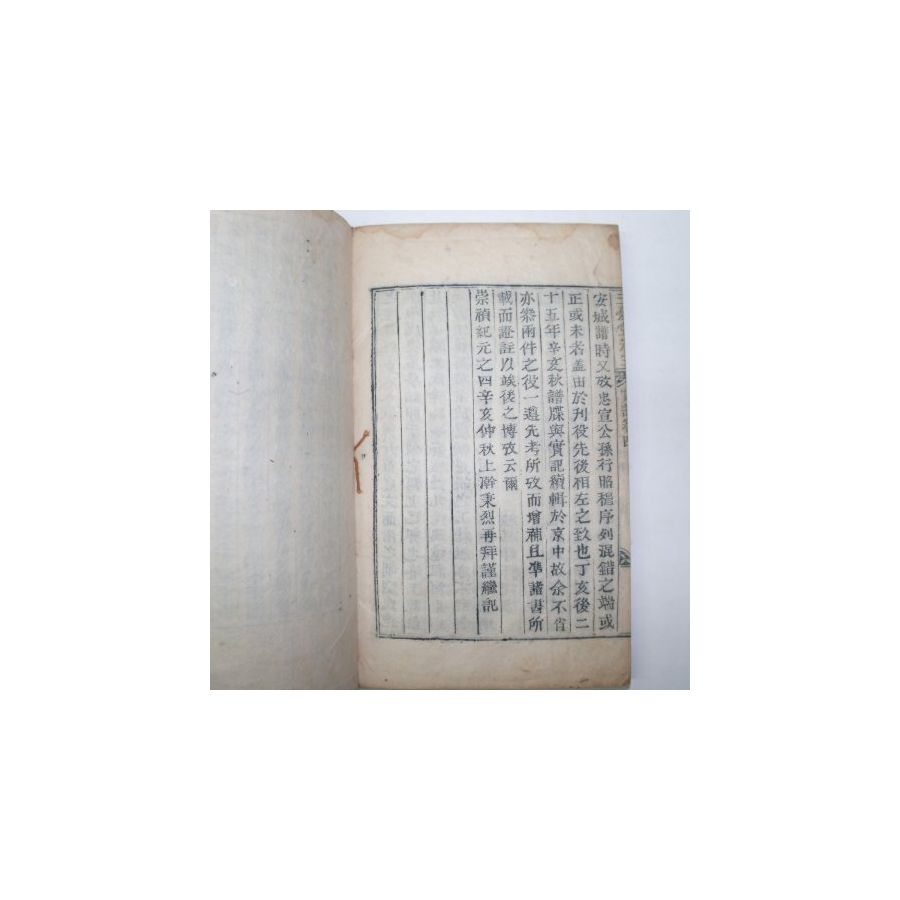 安城譜時又攷忠宣公孫行昭穆序列混錯之端或
正或未者盖由於刋役先後相左之致也丁亥後二
十五年辛亥秋譜牒與實記續輯於京中故余不肖
亦叅兩件之役一遵先考所攷而增補且準諸書所
載而證註以竢後之博攷云爾
崇禎紀元之四辛亥仲秋上澣秉烈再拜謹繼記